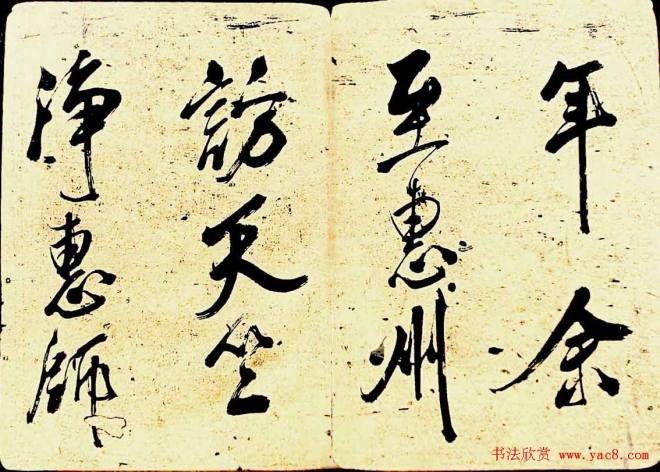 年余
至惠州
訪天竺
淨惠師
书法欣赏 www.yac8.com